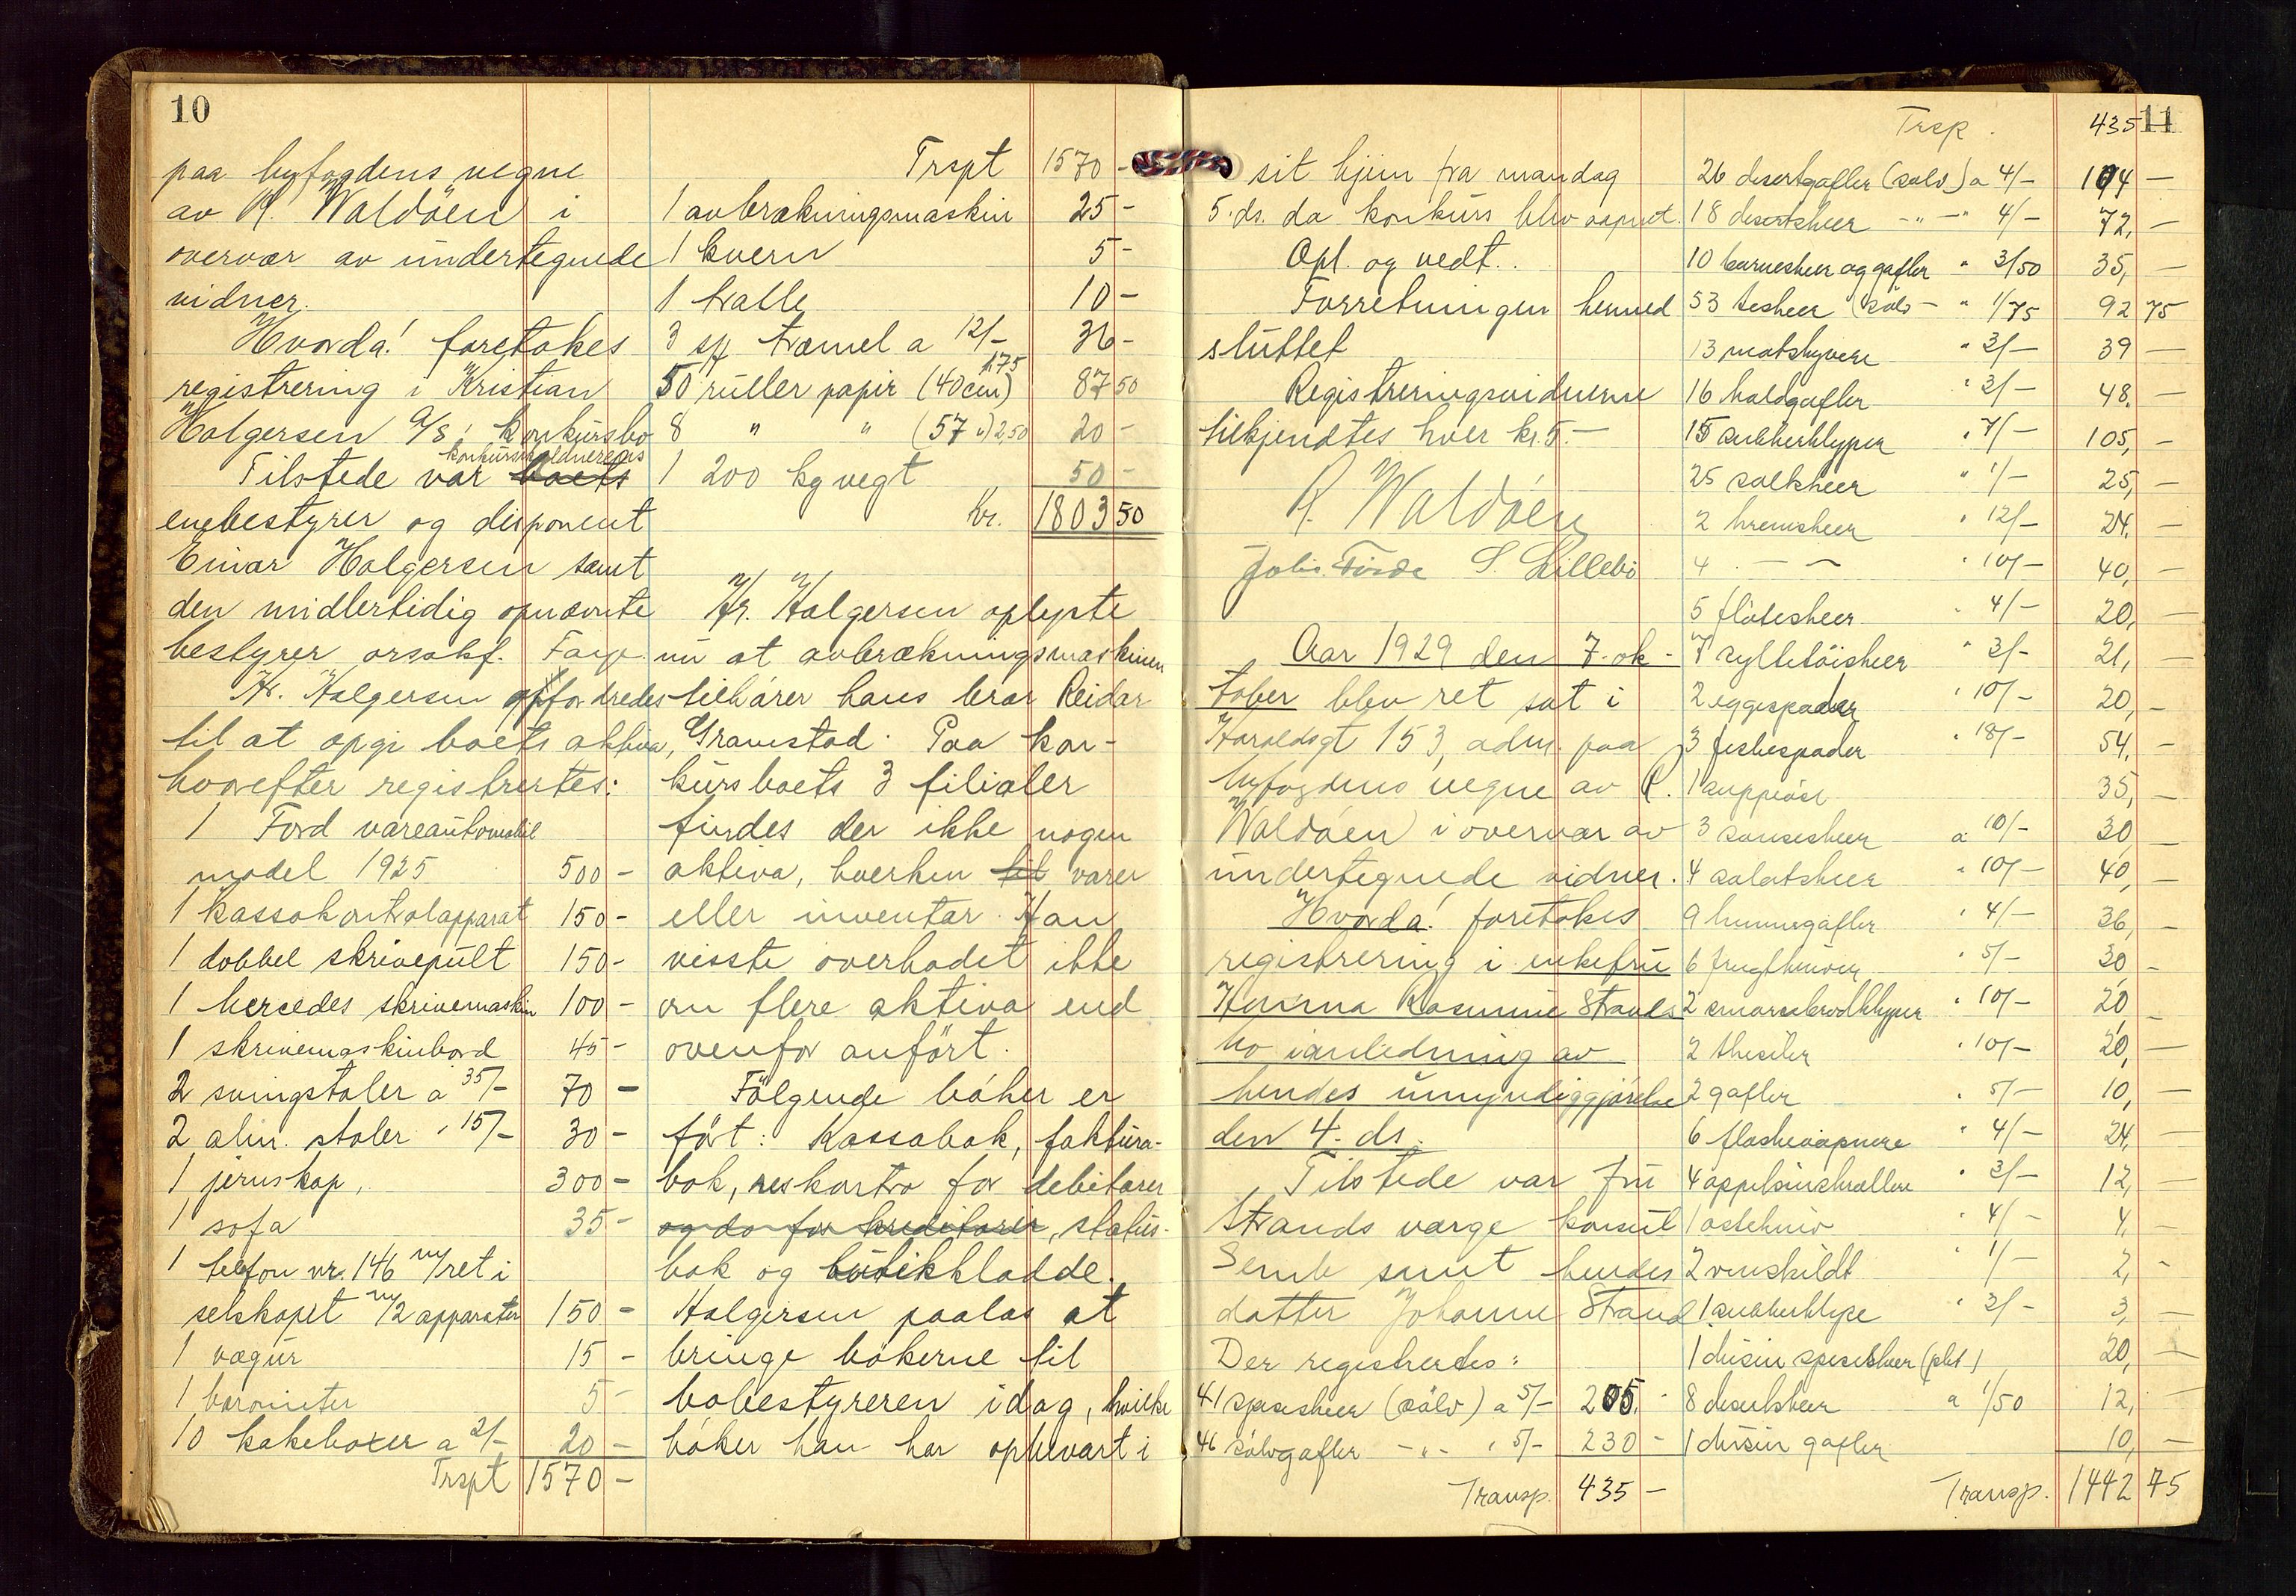 10
paa byfogdens vegne
av R. Waldöen i
overvær av undertegnede
vidner.
Hvorda! foretokes
registrering i Kristian
Holgersen A/S' konkursbo
Tilstede var boets konkursskyldnerens
enebestyrer og disponent
Einar Holgersen samt
den midlertidig opnævnte
bestyrer orsakf.
Hr. Holgersen opfordredes
til at opgi boets aktiva,
hvorefter registrertes:
1 Ford vareautomobil
model 1925 500 -
1 kassakontrolapparat 150 -
1 dobbel skrivepult 150 -
1 Mercedes skrivemaskin 100 -
1 skrivemaskinbord 45 -
2 svingstoler a 35/- 70 -
2 alm. stoler " 15/- 30 -
1 jernskap, 300 -
1 sofa 35 -
1 telefon nr. 146 m/ret i
selskapet m/2 apparater 150 -
1 vægur 15 -
1 barometer 5 -
10 kakebokser a 2/- 20 -
Trspt 1570 -
Trspt 1570 -
1 avbrækningsmaskin 25 -
1 kvern 5 -
1 tralle 10 -
3 sk trämel a 12/- 36 -
50 ruller papir (40 cm) 1.75 87 50
8 " " (57 ") 2,50 20 -
1 200 kg vegt 50 -
kr. 1803 50
Hr. Holgersen oplyste
nu at avbrækningsmaskinen
tilhörer hans bror Reidar
Gramstad. Paa kon-
kursboets 3 filialer
findes der ikke nogen
aktiva, hverken til varer
eller inventar. Han
visste overhodet ikke
om flere aktiva end
ovenfor anfört.
Fölgende böker er
fört: Kassabok, faktura-
bok, reskontro for debitorer
og do for kreditorer, status-
bok og butikkladde.
Holgersen paalas at
bringe bökerne til
bobestyreren idag, hvilke
böker han har opbevart i
11
sit hjem fra mandag
5. ds. da konkurs blev aapnet.
Opl. og vedt..
Forretningen hermed
sluttet
Registreringsvidnerne
tilkjendtes hver kr. 5.-
R. Waldöen
Johs. Förde S. Lillebö
Aar 1929 den 7. ok-
tober blev ret sat i
Haraldsgt 153, adm. paa
byfogdens vegne av R.
Waldöen i overvær av
undertegnede vidner.
Hvorda! foretokes
registrering i enkefru
Hanna Rasmine Strands
bo i anledning av
hendes umyndiggjörelse
den 4. ds.
Tilstede var fru
Strands værge konsul
Semb samt hendes
datter Johanne Strand.
Der registrertes:
41 spiseskeer (sölv) a 5/- 205. -
46 sölvgafler - " - " 5/- 230 -
Transp. 435 -
Trsp. 435
26 desertgafler (sölv) a 4/- 104 -
18 desertskeer - " - " 4/- 72, -
10 barneskeer og gafler " 3/50 35, -
53 teskeer (sölv - " 1/75 92 75
13 matknivere " 3/- 39 -
16 koldgafler " 3/- 48. -
15 sukkerklyper " 7/- 105, -
25 saltskeer " 1/- 25, -
2 kremskeer " 12/- 24. -
4 - - " 10/- 40, -
5 flöteskeer " 4/- 20, -
7 syltetöiskeer " 3/- 21, -
2 eggespader " 10/- 20, -
3 fiskespader " 18/- 54, -
1 suppeöse 35, -
3 sauseskeer a 10/- 30 -
4 salatskeer " 10/- 40, -
9 hummergafler " 4/- 36, -
6 frugtkniver " 5/- 30 -
2 smörrebrödklyper " 10/- 20 -
2 thesiler " 10/- 20, -
2 gafler " 5/- 10, -
6 flaskeaapnere " 4/- 24, -
4 appelsinskrællere " 3/- 12, -
1 ostekniv " 4/- 4, -
2 vinskildt " 1/- 2, -
1 sukkerklype " 3/- 3, -
1 dusin spiseskeer (plet) 20, -
8 desertskeer a 1/50 12, -
1 dusin gafler 10, -
Transp. 1442 75